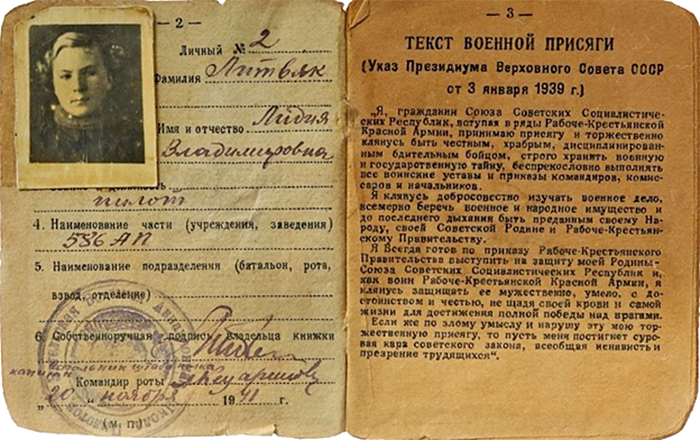 — 2 —
Личный № 2
Фамилия Литвяк
Имя и отчество Лидия
Владимировна
пилот
4. Наименование части (учреждения, заведения)
586 АП
5. Наименование подразделения (батальон, рота,
взвод, отделение)
6. Собственноручная подпись владельца книжки
капитан
Командир роты
„20" ноября 1941 г.
(м. п.)
— 3 —
ТЕКСТ ВОЕННОЙ ПРИСЯГИ
(Указ Президиума Верховного Совета СССР
от 3 января 1939 г.)
„Я, гражданин Союза Советских Социалистиче-
ских Республик, вступая в ряды Рабоче-Крестьянской
Красной Армии, принимаю присягу и торжественно
клянусь быть честным, храбрым, дисциплинирован-
ным, бдительным бойцом, строго хранить военную
и государственную тайну, беспрекословно выполнять
все воинские уставы и приказы командиров, комис-
саров и начальников.
Я клянусь добросовестно изучать военное дело,
всемерно беречь военное и народное имущество и
до последнего дыхания быть преданным своему На-
роду, своей Советской Родине и Рабоче-Крестьян-
скому Правительству.
Я всегда готов по приказу Рабоче-Крестьянского
Правительства выступить на защиту моей Родины—
Союза Советских Социалистических Республик и,
как воин Рабоче-Крестьянской Красной Армии, я
клянусь защищать ее мужественно, умело, с до-
стоинством и честью, не щадя своей крови и самой
жизни для достижения полной победы над врагами.
Если же по злому умыслу я нарушу эту мою тор-
жественную присягу, то пусть меня постигнет суро-
вая кара советского закона, всеобщая ненависть и
презрение трудящихся“.